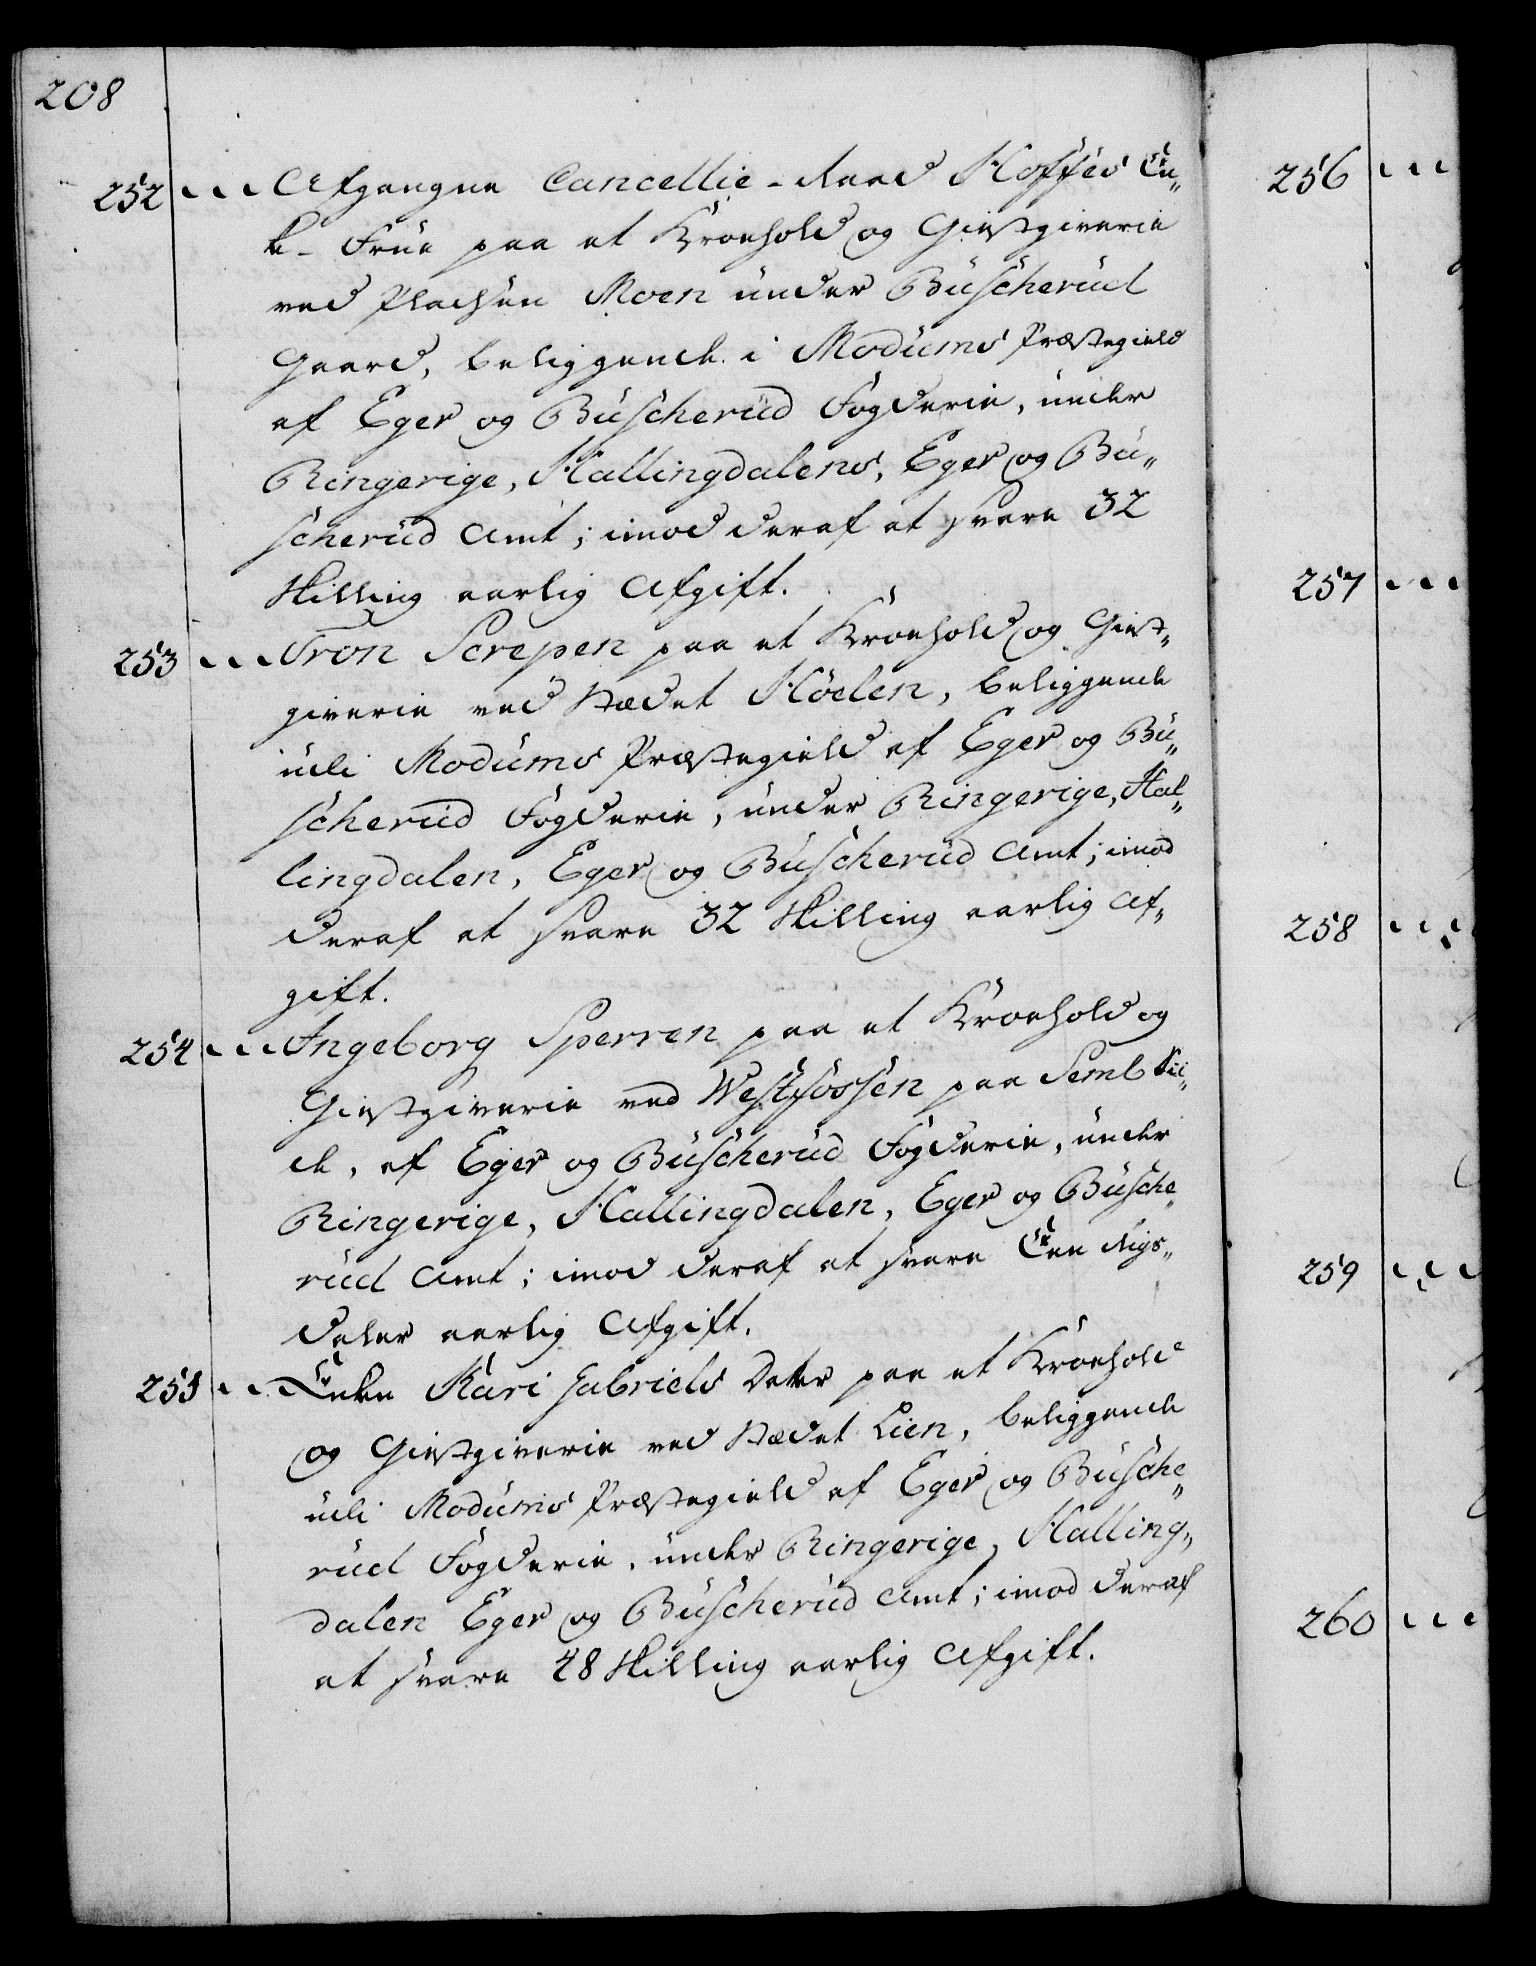 208
252 ... Afgangne Cancellie-Raad Hoffes En„
ke-Frue paa et Kroehold og Giestgiverie
ved Pladsen Moen under Buscherud
Gaard, beliggende i Modums Præstegield
af Eger og Buscherud Fogderie, under
Ringerige, Hallingdalens, Eger og Bu„
scherud Amt; imod deraf at svare 32
Skilling aarlig Afgift.
253 ... Tron Screpen paa et Kroehold og Giest„
giverie ved Stædet Hoelen, beliggende
udi Modums Præstegield af Eger og Bu„
scherud Fogderie, under Ringerige, Hal„
lingdalen, Eger og Buscherud Amt; imod
deraf at svare 32 Skilling aarlig Af„
gift.
254 ... Ingeborg Sperren paa et Kroehold og
Giestgiverie ved Westfossen paa Semb Ei„
de, af Eger og Buscherud Fogderie, under
Ringerige, Hallingdalen, Eger og Busche„
rud Amt; imod deraf at svare Een Rigs„
daler aarlig Afgift.
255 .. Enken Kari Gabriels Datter paa et Kroehold
og Giestgiverie ved Stædet Lien, beliggende
udi Modums Præstegield af Eger og Busche„
rud Fogderie, under Ringerige, Halling„
dalen Eger og Buscherud Amt; imod deraf
at svare 48 Skilling aarlig Afgift.
256 ...
257 ...
258 ...
259 ...
260 ...